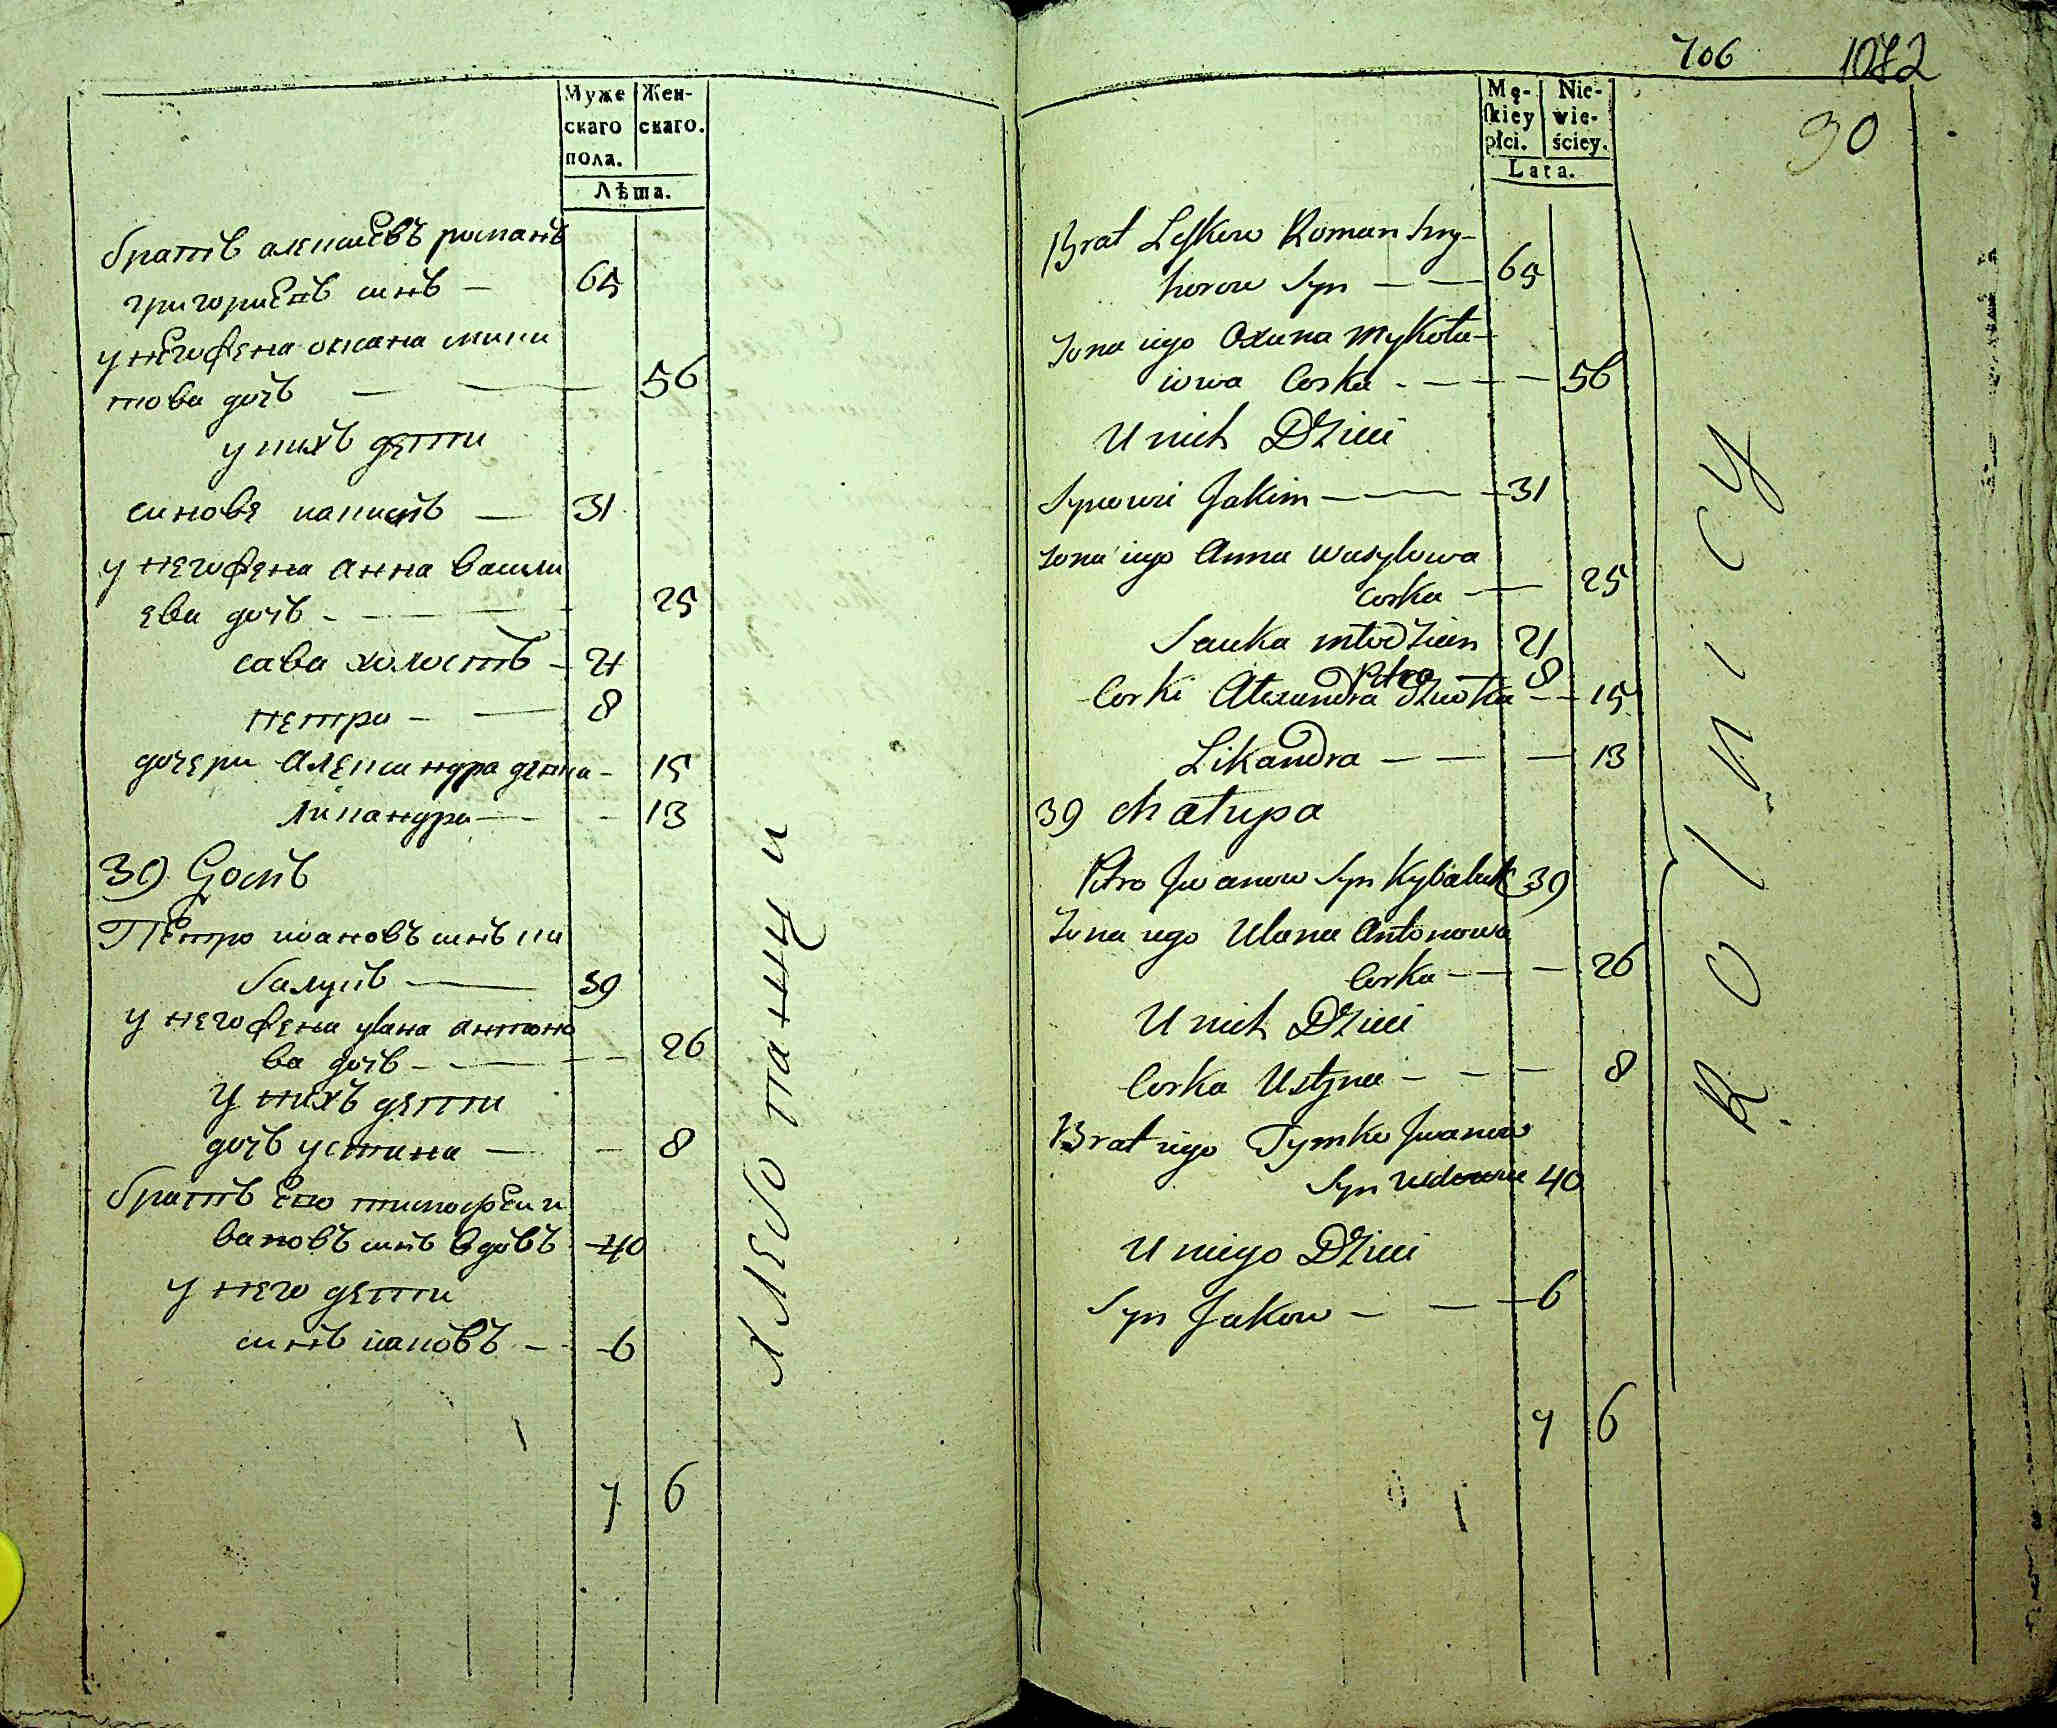 Муже
скаго
пола.
Жен-
скаго.
Лѣта.
братъ алексѣевъ романъ
григориевъ синъ — 65
у него жена оксана мики
това дочъ — — 56
у нихъ дети
синовя иакимъ — 31
у него жена анна васили
ева дочъ - — 25
сава холостъ - 21
петро - — 8
дочери александра девка - 15
ликандра — - 13
39 Домъ
Петро ивановъ синъ ки
балукъ — 39
у него жена улана антоно
ва дочъ - — 26
У нихъ дети
дочъ устина — - 8
братъ его тимофеи и
вановъ синъ вдовъ 40
у него дети
синъ иаковъ - 6
7 6
хлебопашци
706 1072
90
Mę-
skiey
płci.
Nie-
wie-
ściey.
Lata.
Brat Leskow Roman Hry-
horow Syn — — 65
Zona iego Oxana Mykoła-
iowa Corka - — — 56
U nich Dzieci
Synowie Jakim — — 31
Zona iego Anna Wasylowa
Corka — 25
Sauka młodzien 21
Petro — 8
Corki Alexandra Dziewka — 15
Likandra — — — 13
39 Chałupa
Petro Jwanow Syn Kybaluk 39
Zona iego Ulana Antonowa
Corka — — 26
U nich Dzieci
Corka Ustyna — — — 8
Brat iego Tymko Jwanow
Syn wdowiec 40
U niego Dzieci
Syn Jakow — — — 6
7 6
ROLNICY